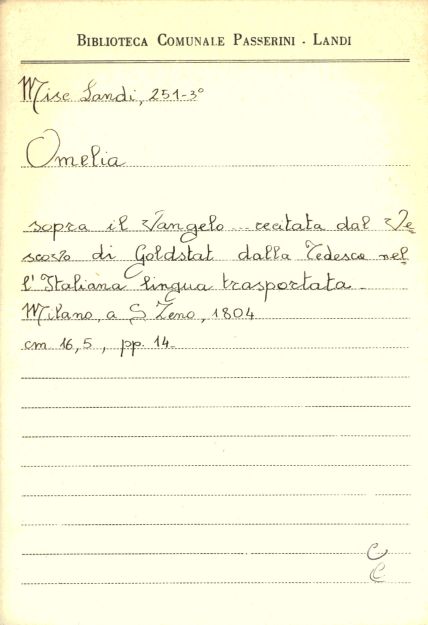 BIBLIOTECA COMUNALE PASSERINI - LANDI
Misc Landi, 251-3°
Omelia
sopra il Vangelo ... recitata dal Ve=
scovo di Goldstat dalla Tedesca nel=
l'Italiana lingua trasportata -
Milano, a S. Zeno, 1804
cm 16,5, pp. 14-
C
C